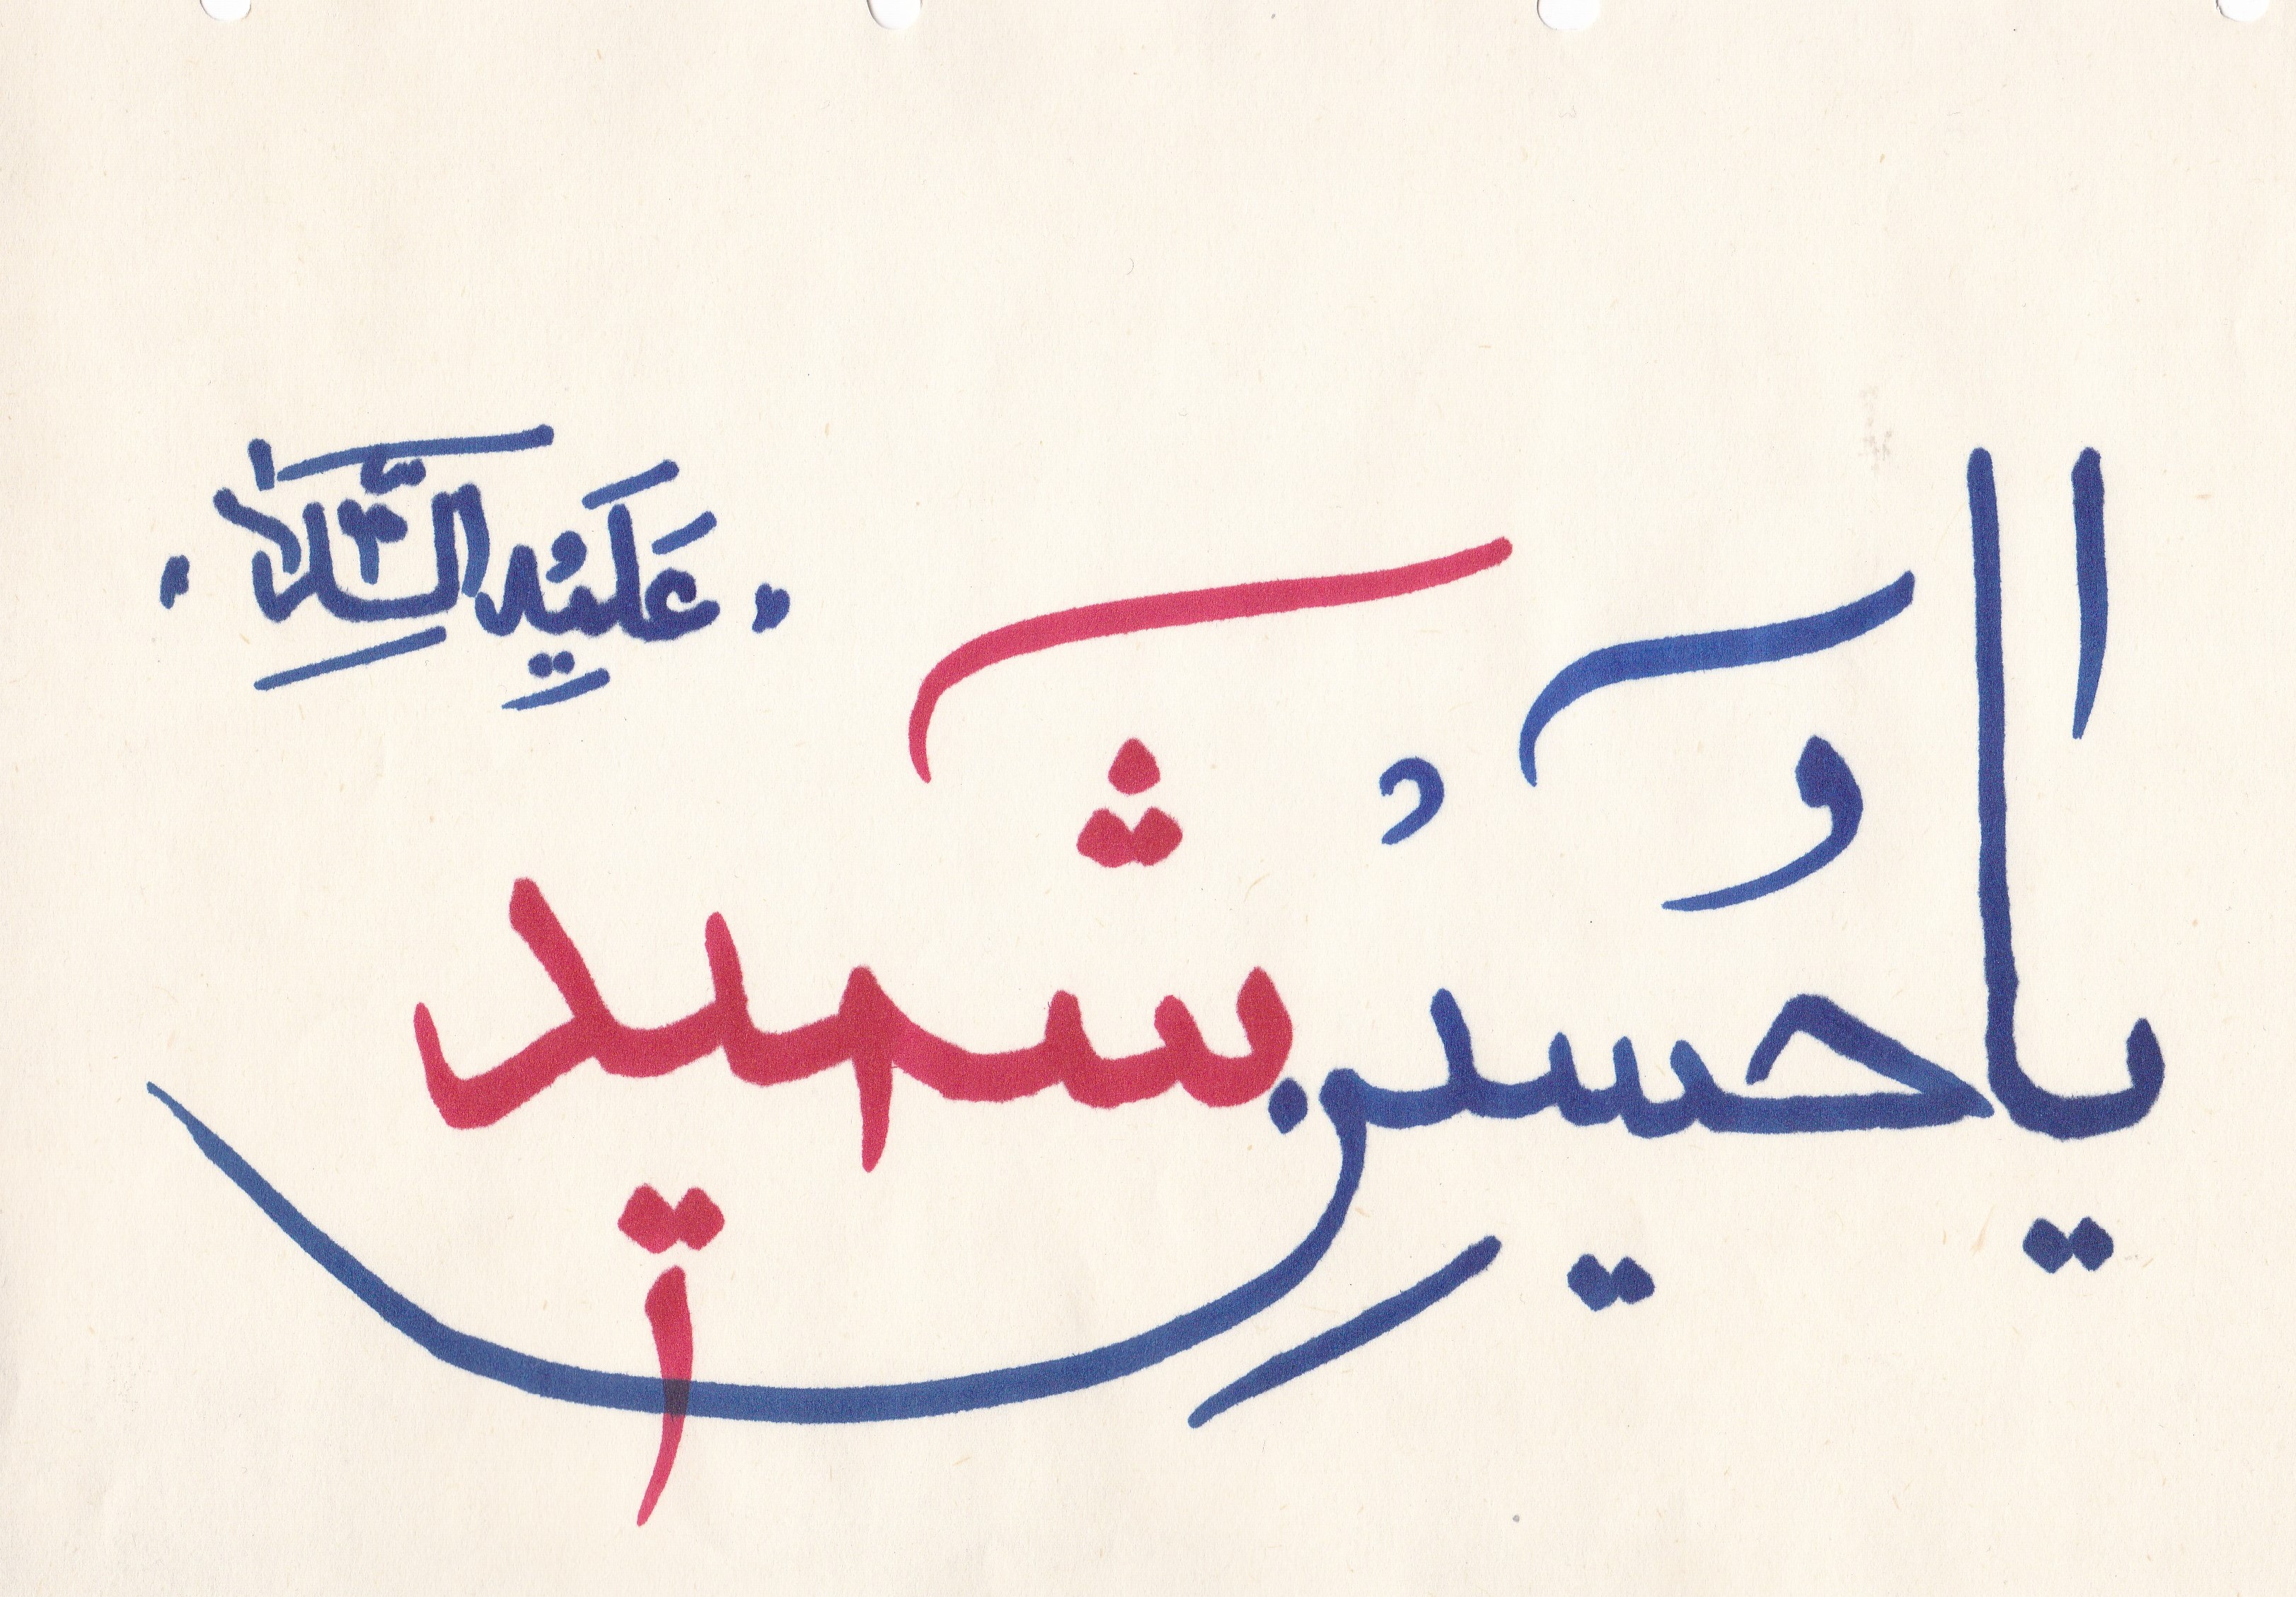 يا حُسين شهيد
عَلَيْهِ السَّلَام